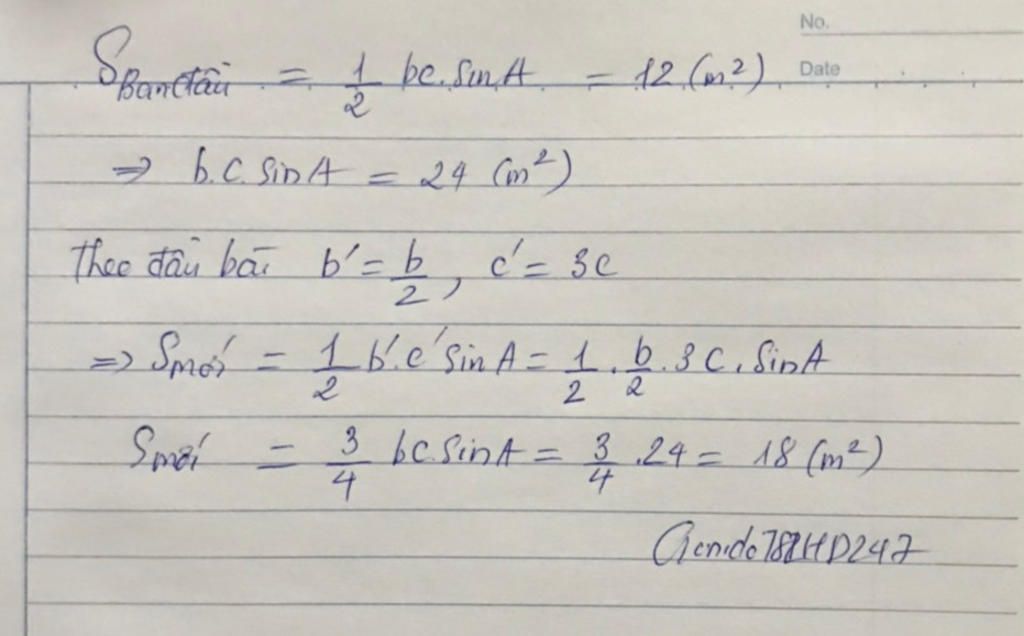 No.
Date
S Ban đầu = 1/2 bc.sinA = 12 (m²)
⇒ b.c.sinA = 24 (m²)
Theo đầu bài b' = b/2, c' = 3c
⇒ S mới = 1/2 b'.c' sinA = 1/2 . b/2 . 3c. sinA
S mới = 3/4 bc.sinA = 3/4 .24 = 18 (m²)